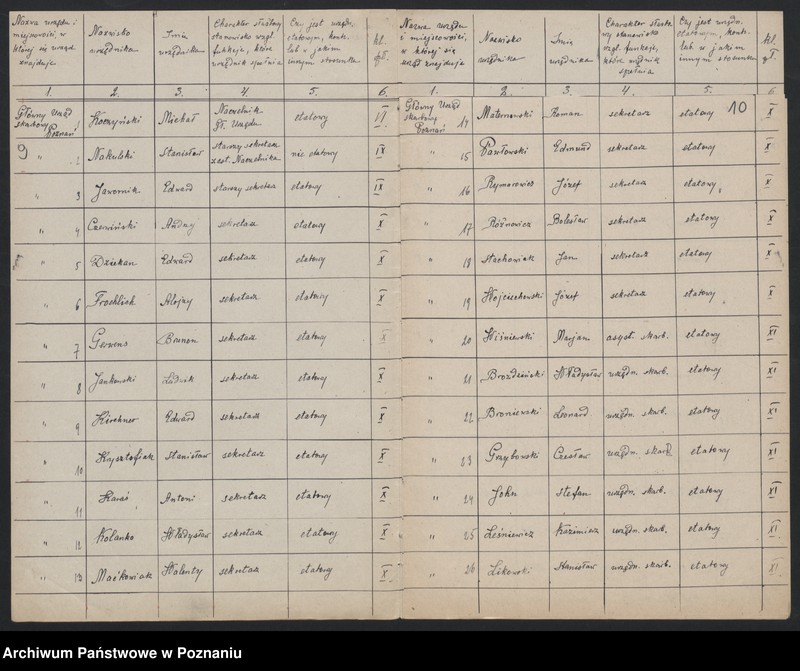 Nazwa urzędu i
miejscowości, w
której się urząd
znajduje
Nazwisko
urzędnika
Imię
urzędnika
Charakter służbowy
stanowisko wzgl.
funkcje, które
urzędnik spełnia
Czy jest urzęd.
etatowym, kontr.
lub w jakim
innym stosunku
kl.
pł.
1. 2. 3. 4. 5. 6.
Główny Urząd
skarbowy 1 Koczyński Michał Naczelnik etatowy VI
Poznań Gł. Urzędu
9 " 2 Nakulski Stanisław starszy sekretarz nie etatowy IX
zast. Naczelnika
" 3 Jawornik Edward starszy sekretarz etatowy IX
" 4 Czerwiński Andrzej sekretarz etatowy X
" 5 Dziekan Edward sekretarz etatowy X
" 6 Froehlich Alojzy sekretarz etatowy X
" 7 Gerrens Brunon sekretarz etatowy X
" 8 Jankowski Ludwik sekretarz etatowy X
" 9 Kirchner Edward sekretarz etatowy X
" 10 Krysztofiak Stanisław sekretarz etatowy X
" 11 Karaś Antoni sekretarz etatowy X
" 12 Kolanko Władysław sekretarz etatowy X
" 13 Maćkowiak Walenty sekretarz etatowy X
Nazwa urzędu
i miejscowości,
w której się
urząd znajduje
Nazwisko
urzędnika
Imię
urzędnika
Charakter służbo
wy stanowisko
wzgl. funkcje,
które urzędnik
spełnia
Czy jest urzędn.
etatowym, kontr.
lub w jakim
innym stosunku
kl.
pł.
1. 2. 3. 4. 5. 6
10
Główny Urząd
skarbowy 14 Maternowski Roman sekretarz etatowy X
Poznań
" 15 Pawłowski Edmund sekretarz etatowy X
" 16 Rymarowicz Józef sekretarz etatowy X
" 17 Różnowicz Bolesław sekretarz etatowy X
" 18 Stachowiak Jan sekretarz etatowy X
" 19 Wojciechowski Józef sekretarz etatowy X
" 20 Wiśniewski Marjan asyst. skarb. etatowy XI
" 21 Broździński Władysław urzędn. skarb. etatowy XI
" 22 Broniewski Leonard urzędn. skarb. etatowy XI
" 23 Grzybowski Czesław urzędn. skarb. etatowy XI
" 24 John Stefan urzędn. skarb. etatowy XI
" 25 Leśniewicz Kazimierz urzędn. skarb. etatowy XI
" 26 Likowski Stanisław urzędn. skarb. etatowy XI
Archiwum Państwowe w Poznaniu